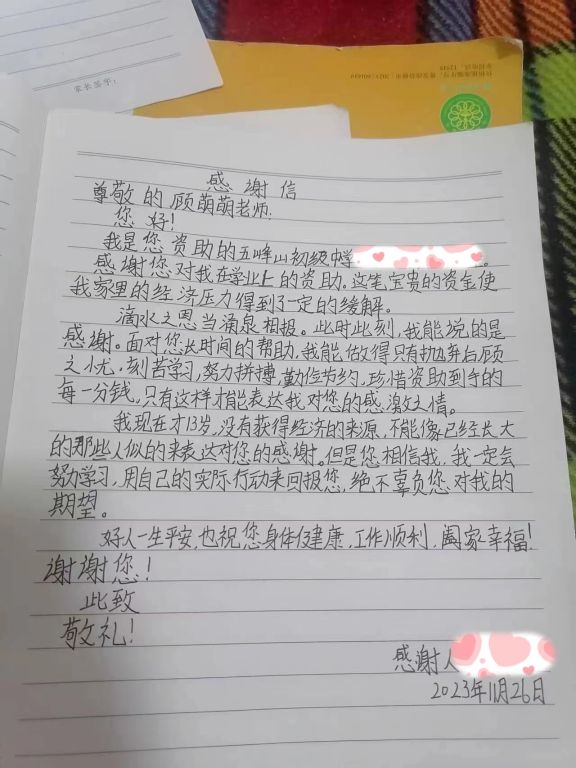 家长签字：
感谢信
尊敬的顾萌萌老师：
您好！
我是您资助的五峰山初级中学
感谢您对我在学业上的资助。这笔宝贵的资金使
我家里的经济压力得到了一定的缓解。
滴水之恩当涌泉相报。此时此刻，我能说的是
感谢。面对您长时间的帮助，我能做得只有抛弃后顾
之小忧，刻苦学习，努力拼搏，勤俭节约，珍惜资助到手的
每一分钱，只有这样才能表达我对您的感激之情。
我现在才13岁，没有获得经济的来源，不能像已经长大
的那些人似的来表达对您的感谢。但是您相信我，我一定会
努力学习，用自己的实际行动来回报您，绝不辜负您对我的
期望。
好人一生平安，也祝您身体健康，工作顺利，阖家幸福！
谢谢您！
此致
敬礼！
感谢人
2023年11月26日